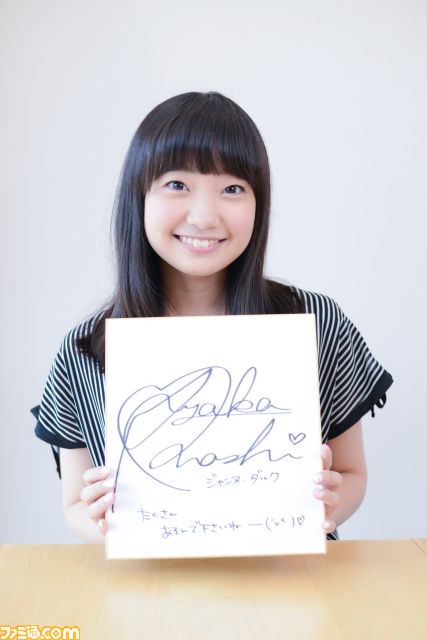 Ayaka
Ohashi
ジャンヌ・ダルク
たくさん
あそんで下さいねー
ファミ通.com